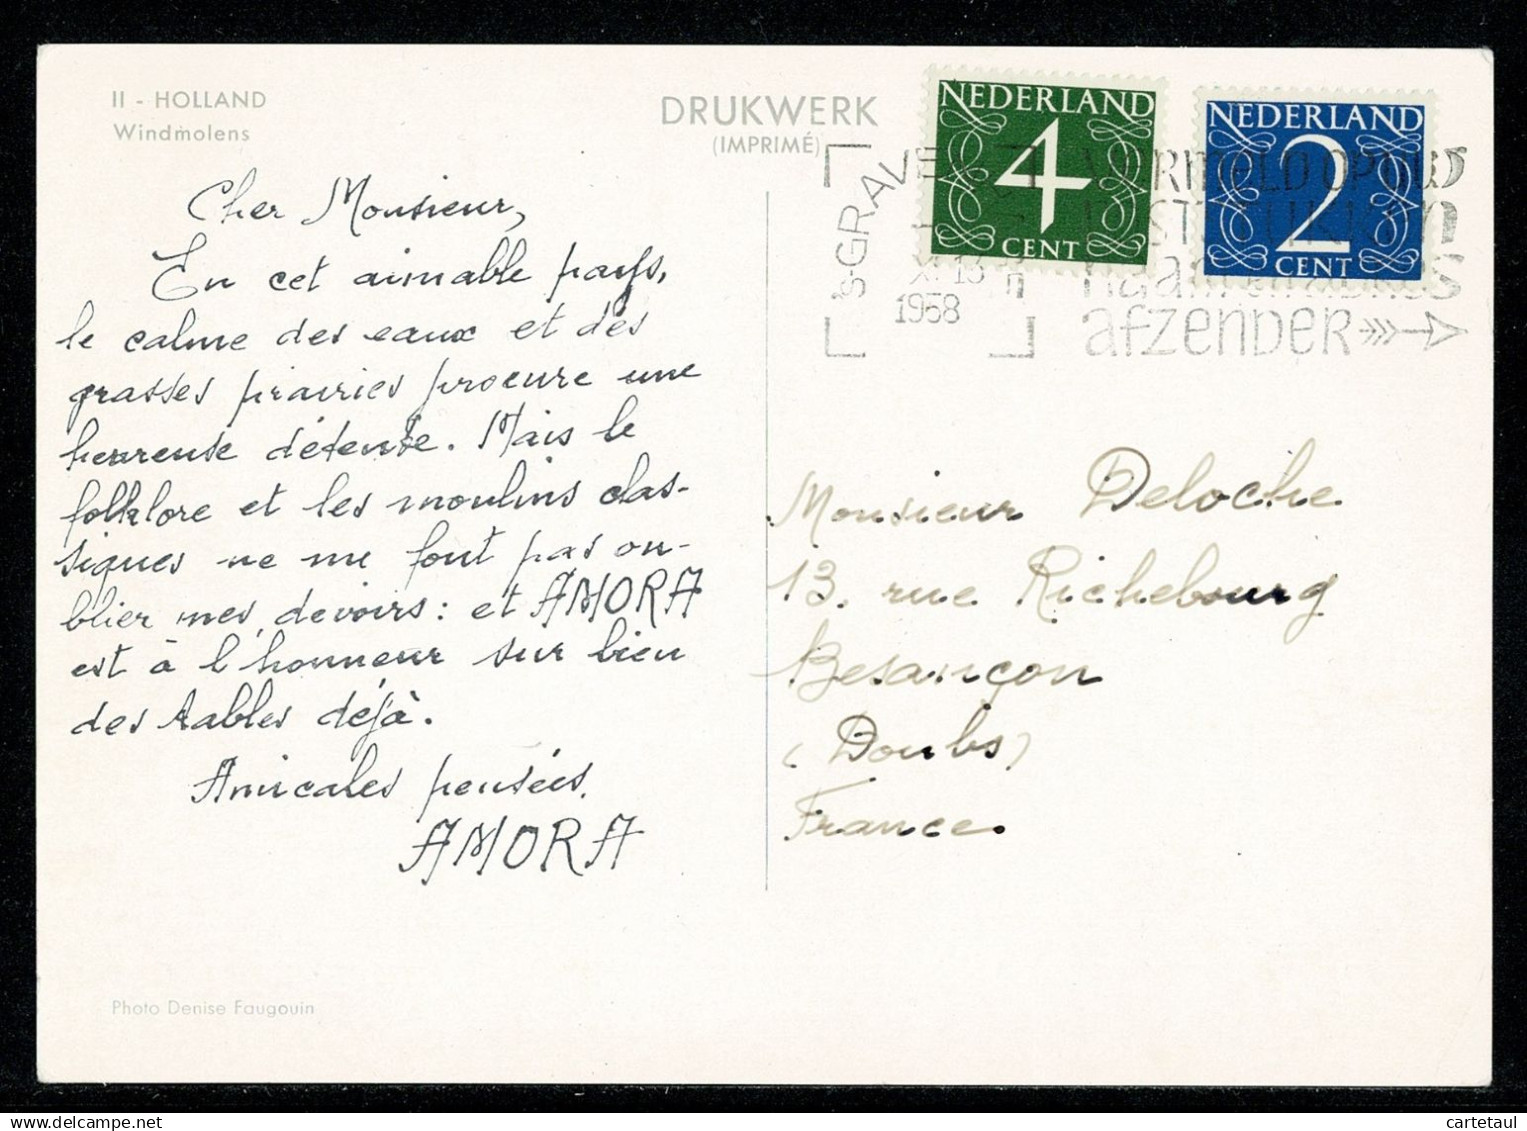 II - HOLLAND
Windmolens
DRUKWERK
(IMPRIMÉ)
NEDERLAND
4
CENT
NEDERLAND
2
CENT
's-GRAVE
XI 13
1958
afzender
Cher Monsieur,
En cet aimable pays,
le calme des eaux et des
grasses prairies procure une
heureuse détente. Mais le
folklore et les moulins clas-
siques ne me font pas ou-
blier mes devoirs : et AMORA
est à l'honneur sur bien
des tables déjà.
Amicales pensées.
AMORA
Monsieur Deloche
13, rue Richebourg
Besançon
(Doubs)
France.
Photo Denise Faugouin
cartetaul